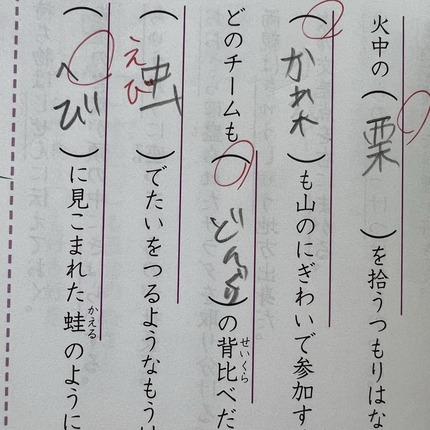 火中の（栗）を拾うつもりはな
（かれ木）も山のにぎわいで参加す
どのチームも（どんぐり）の背比べだ
せいくら
（）でたいをつるようなもう
えび
（へび）に見こまれた蛙のように
かえる